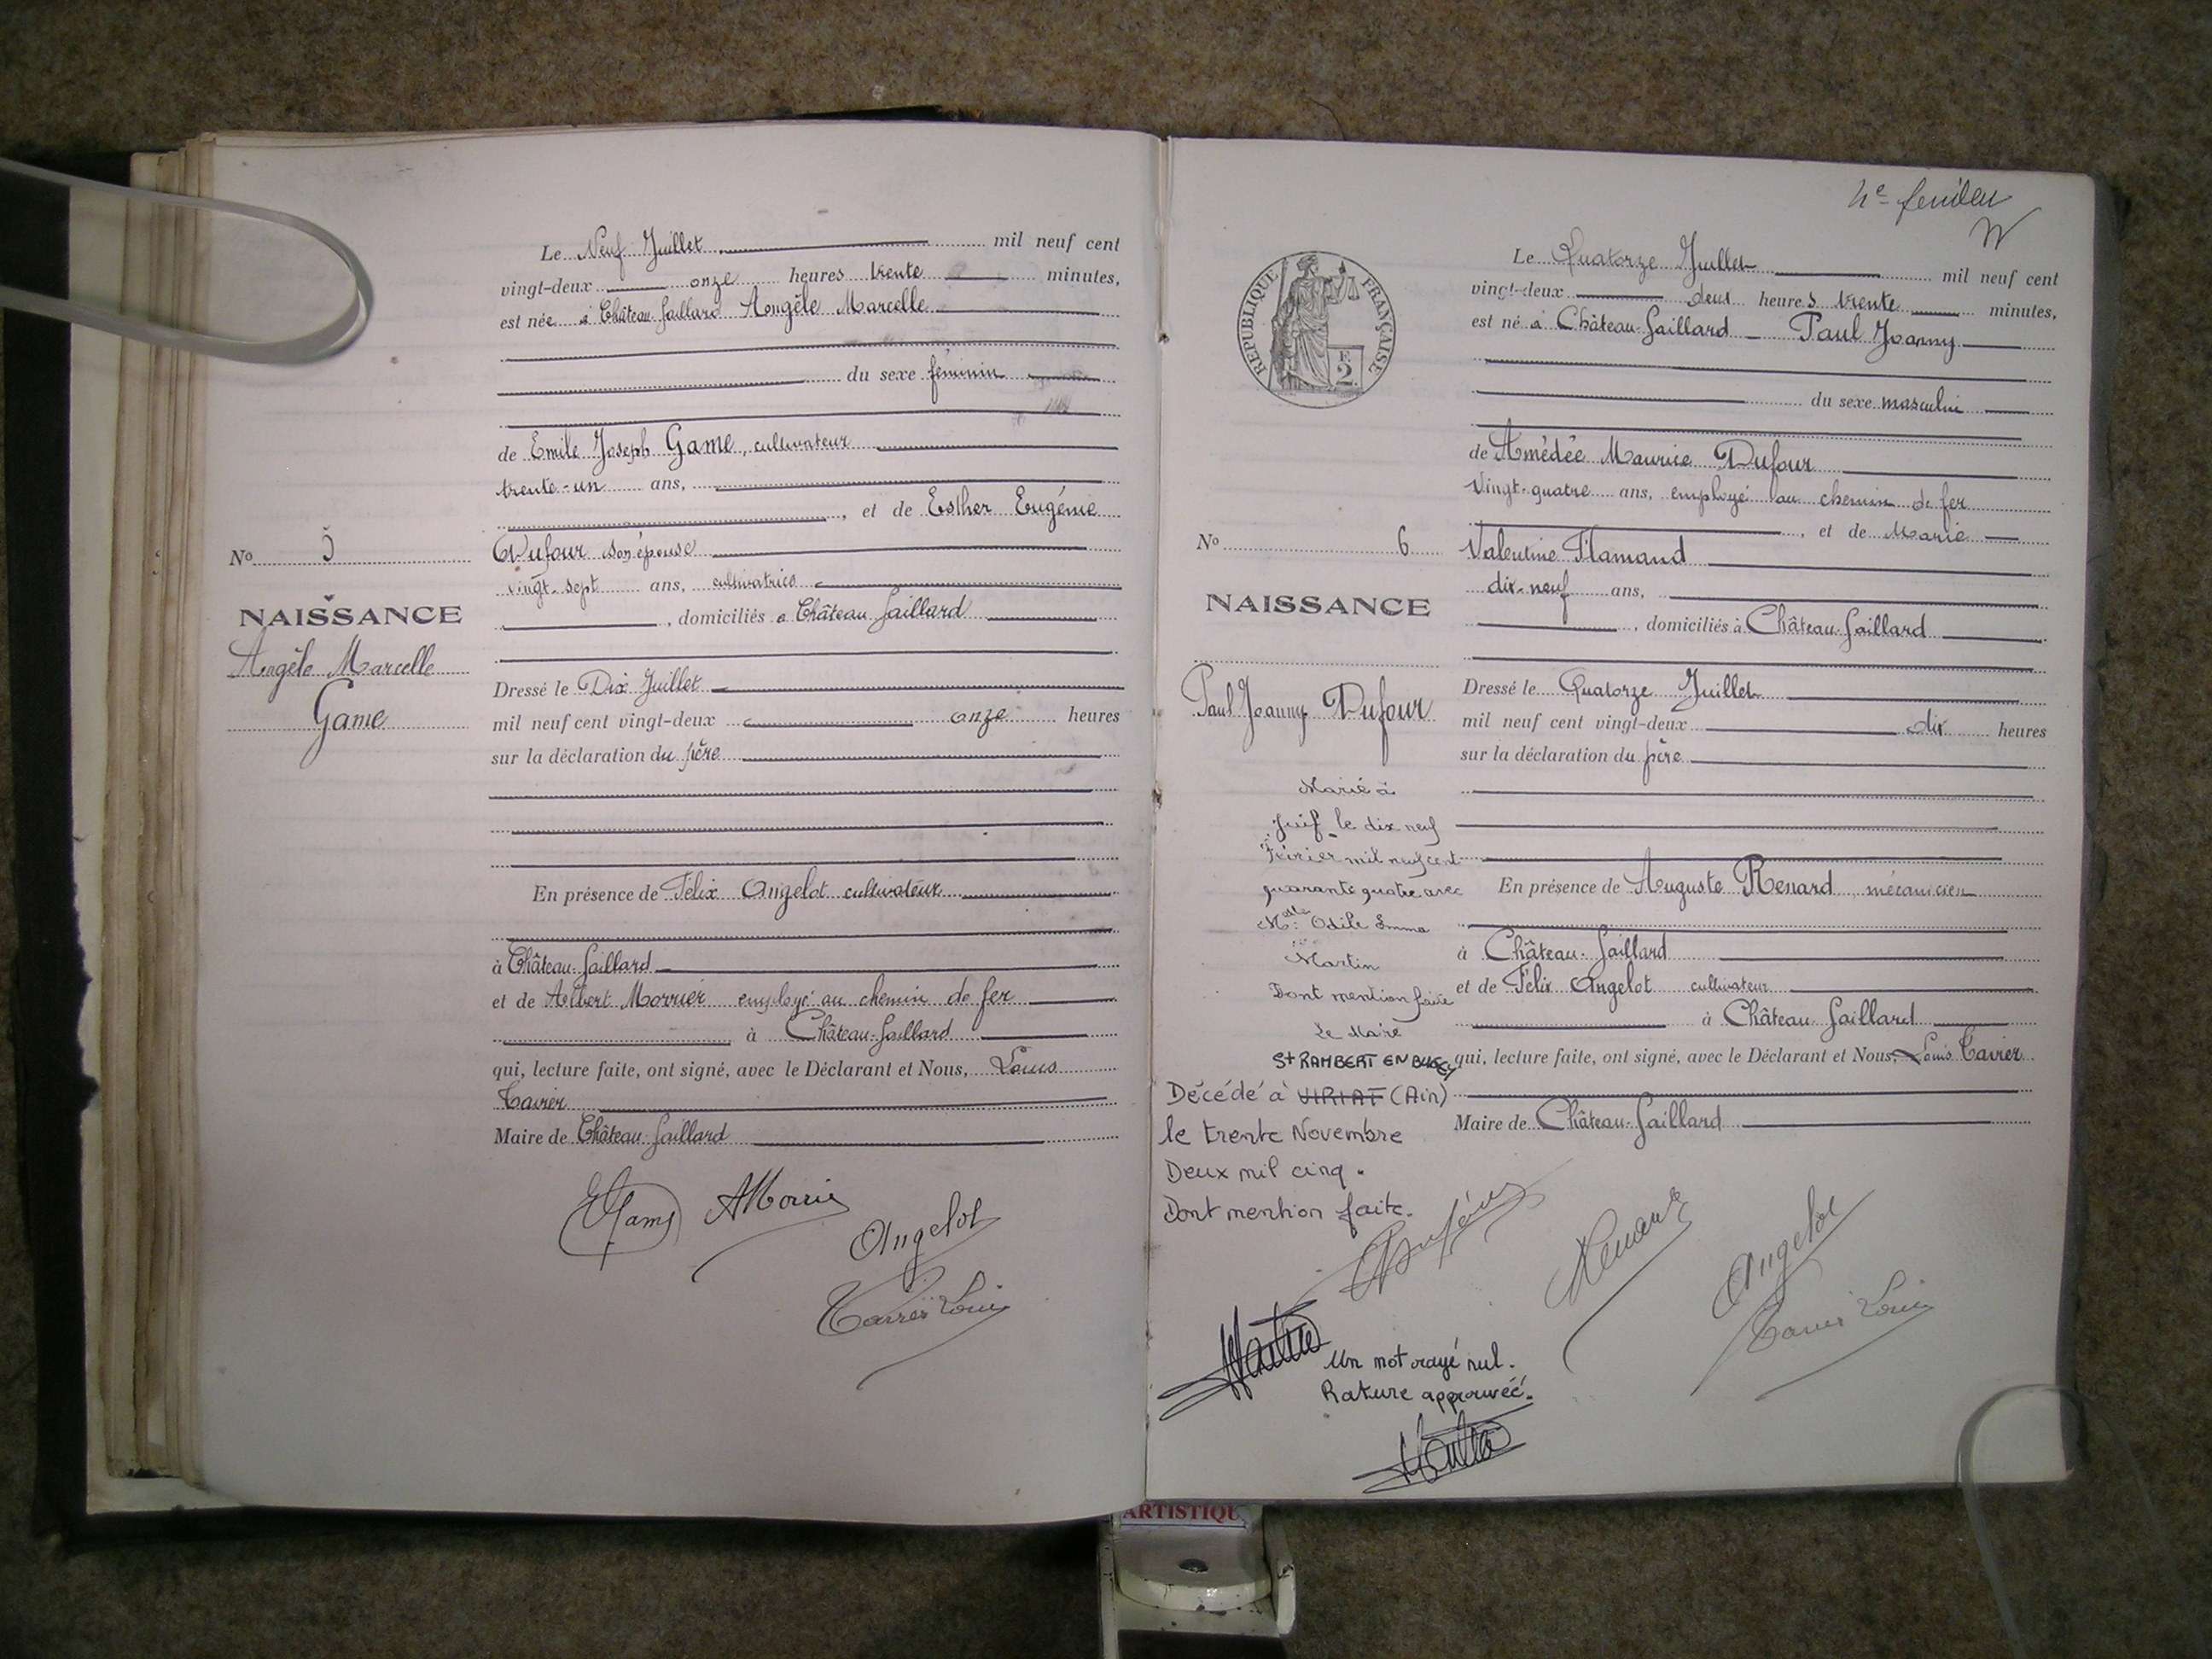 Le Neuf Juillet mil neuf cent
vingt-deux onze heures trente minutes,
est née à Château-Gaillard Angèle Marcelle
du sexe féminin
de Emile Joseph Game, cultivateur
trente-un ans,
, et de Esther Eugénie
Dufour son épouse
vingt-sept ans, cultivatrice
, domiciliés à Château-Gaillard
Dressé le Dix Juillet
mil neuf cent vingt-deux onze heures
sur la déclaration du père
En présence de Félix Angelot cultivateur
à Château-Gaillard
et de Albert Morrier employé au chemin de fer
à Château-Gaillard
qui, lecture faite, ont signé, avec le Déclarant et Nous, Louis
Tavier
Maire de Château-Gaillard
No 5
NAISSANCE
Angèle Marcelle
Game
EGame
Angelot
Louis
4e feuillet
RÉPUBLIQUE FRANÇAISE
E
2
Le Quatorze Juillet mil neuf cent
vingt-deux deux heures trente minutes,
est né à Château-Gaillard Paul Joanny
du sexe masculin
de Amédée Maurice Dufour
Vingt-quatre ans, employé au chemin de fer
, et de Marie
Valentine Flamand
dix-neuf ans,
, domiciliés à Château-Gaillard
Dressé le Quatorze Juillet
mil neuf cent vingt-deux dix heures
sur la déclaration du père
En présence de Auguste Renard mécanicien
à Château-Gaillard
et de Félix Angelot cultivateur
à Château-Gaillard
qui, lecture faite, ont signé, avec le Déclarant et Nous, Louis Tavier
Maire de Château-Gaillard
No 6
NAISSANCE
Paul Joanny Dufour
Marié à
Juif le dix neuf
Février mil neuf cent
quarante quatre avec
Melle Odile Emma
Martin
Dont mention faite
Le Maire
St RAMBERT EN BUGEY
Décédé à VIRIAT (Ain)
le trente Novembre
Deux mil cinq.
Dont mention faite.
Dufour
Renard
Angelot
Louis
Un mot rayé nul.
Rature approuvée.
ARTISTIQU